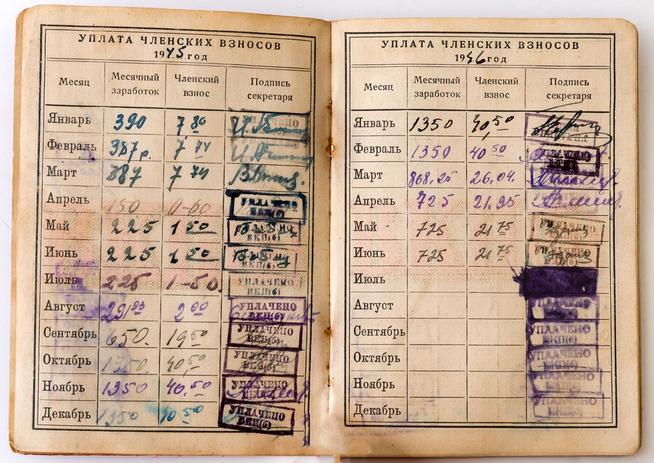 УПЛАТА ЧЛЕНСКИХ ВЗНОСОВ
1945 год
Месяц Месячный заработок Членский взнос Подпись секретаря
Январь 390 7 80
Февраль 387 р. 7 74
Март 387 7 74
Апрель 150 УПЛАЧЕНО ВКП(б)
Май 225 1 50 УПЛАЧЕНО ВКП(б)
Июнь 225 1 50 ВКП(б)
Июль 225 1-50 УПЛАЧЕНО ВКП(б)
Август 2 00 УПЛАЧЕНО ВКП(б)
Сентябрь 650. 19 50 УПЛАЧЕНО ВКП(б)
Октябрь 40 50 УПЛАЧЕНО ВКП(б)
Ноябрь 1350 40,50 УПЛАЧЕНО ВКП(б)
Декабрь 1350 40 50 УПЛАЧЕНО ВКП(б)
УПЛАТА ЧЛЕНСКИХ ВЗНОСОВ
1946 год
Месяц Месячный заработок Членский взнос Подпись секретаря
Январь 1350 40,50
Февраль 1350 40 50 УПЛАЧЕНО
Март 868,25 26.04.
Апрель 725 21,95
Май 725 21 75 УПЛАЧЕНО ВКП(б)
Июнь 725 21 75 УПЛАЧЕНО ВКП(б)
Июль
Август УПЛАЧЕНО
Сентябрь УПЛАЧЕНО ВКП(б)
Октябрь УПЛАЧЕНО ВКП(б)
Ноябрь УПЛАЧЕНО ВКП(б)
Декабрь УПЛАЧЕНО ВКП(б)